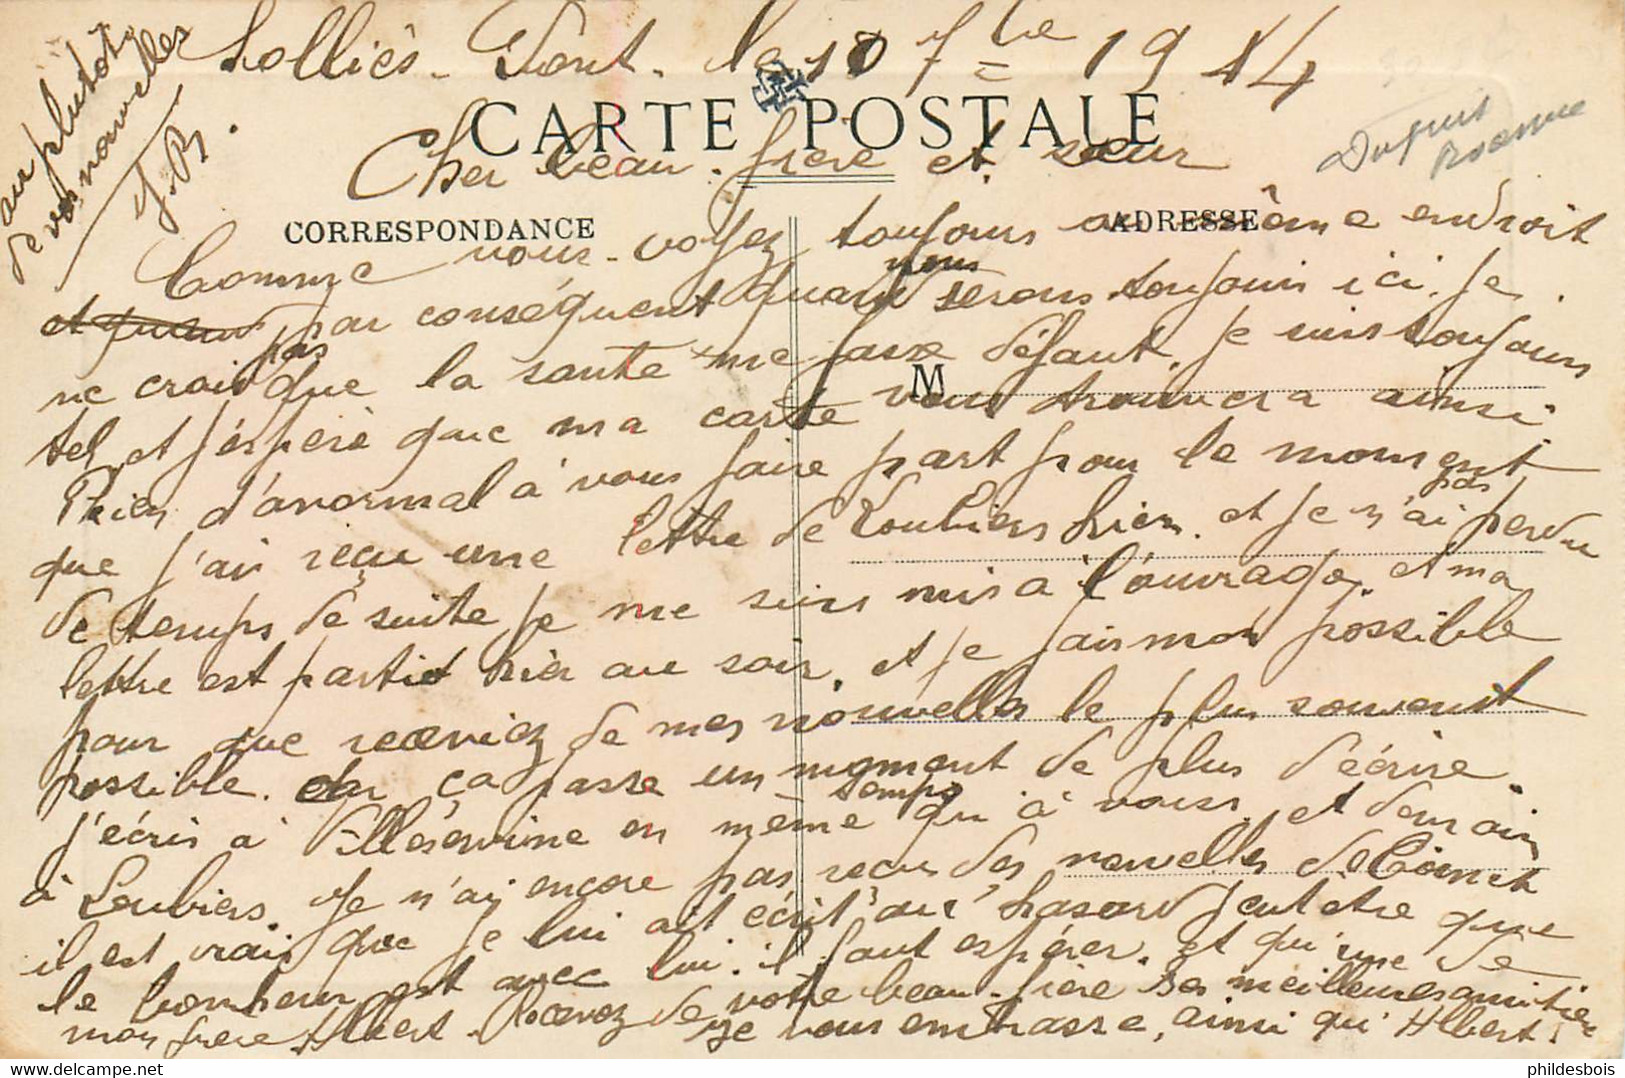 Solliès-Pont. le 10 7bre 1914
CARTE POSTALE
Cher beau-frère et sœur
CORRESPONDANCE
ADRESSE
Comme vous voyez toujours au même endroit
et quand par conséquent quand nous serons toujours ici. Je
ne crois pas que la santé me fasse défaut. Je suis toujours
M
tel et j'espère que ma carte vous trouvera ainsi
Rien d'anormal à vous faire part pour le moment
que j'ai reçu une lettre de Loubiers hier. et je n'ai pas perdu
de temps de suite je me suis mis a l'ouvrage. et ma
lettre est partie hier au soir. et je fais mon possible
pour que receviez de mes nouvelles le plus souvent
possible. ça passe un moment de plus d'écrire.
j'écris à en même temps qu'à vous. et demain
à Loubiers. Je n'ai encore pas reçu des nouvelles de
il est vrai que je lui ait écrit au hasard peut etre que
le bonheur est avec lui. il faut espérer. et qu'une de
mon frere Albert. Recevez de votre beau-frère ses meilleures amitiés
je vous embrasse, ainsi qu'Albert.
au plutôt
de vos nouvelles
J.B.
phildesbois